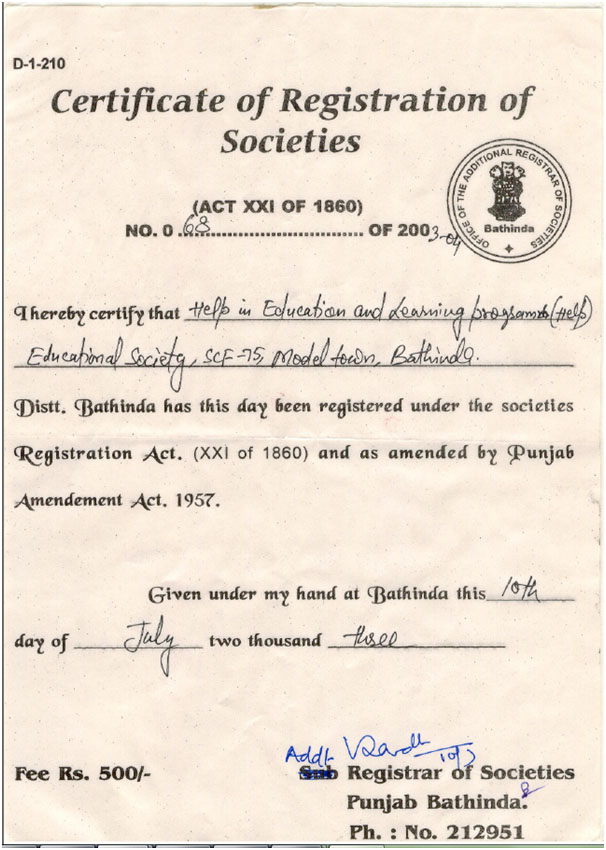 D-1-210
Certificate of Registration of
Societies
(ACT XXI OF 1860)
NO. 0 68 OF 2003-04
OFFICE OF THE ADDITIONAL REGISTRAR OF SOCIETIES
Bathinda
I hereby certify that Help in Education and Learning programme (Help)
Educational Society, SCF-75, Model town, Bathinda.
Distt. Bathinda has this day been registered under the societies
Registration Act. (XXI of 1860) and as amended by Punjab
Amendement Act. 1957.
Given under my hand at Bathinda this 10th
day of July two thousand three
Addl.
Fee Rs. 500/- Sub Registrar of Societies
Punjab Bathinda.
Ph. : No. 212951